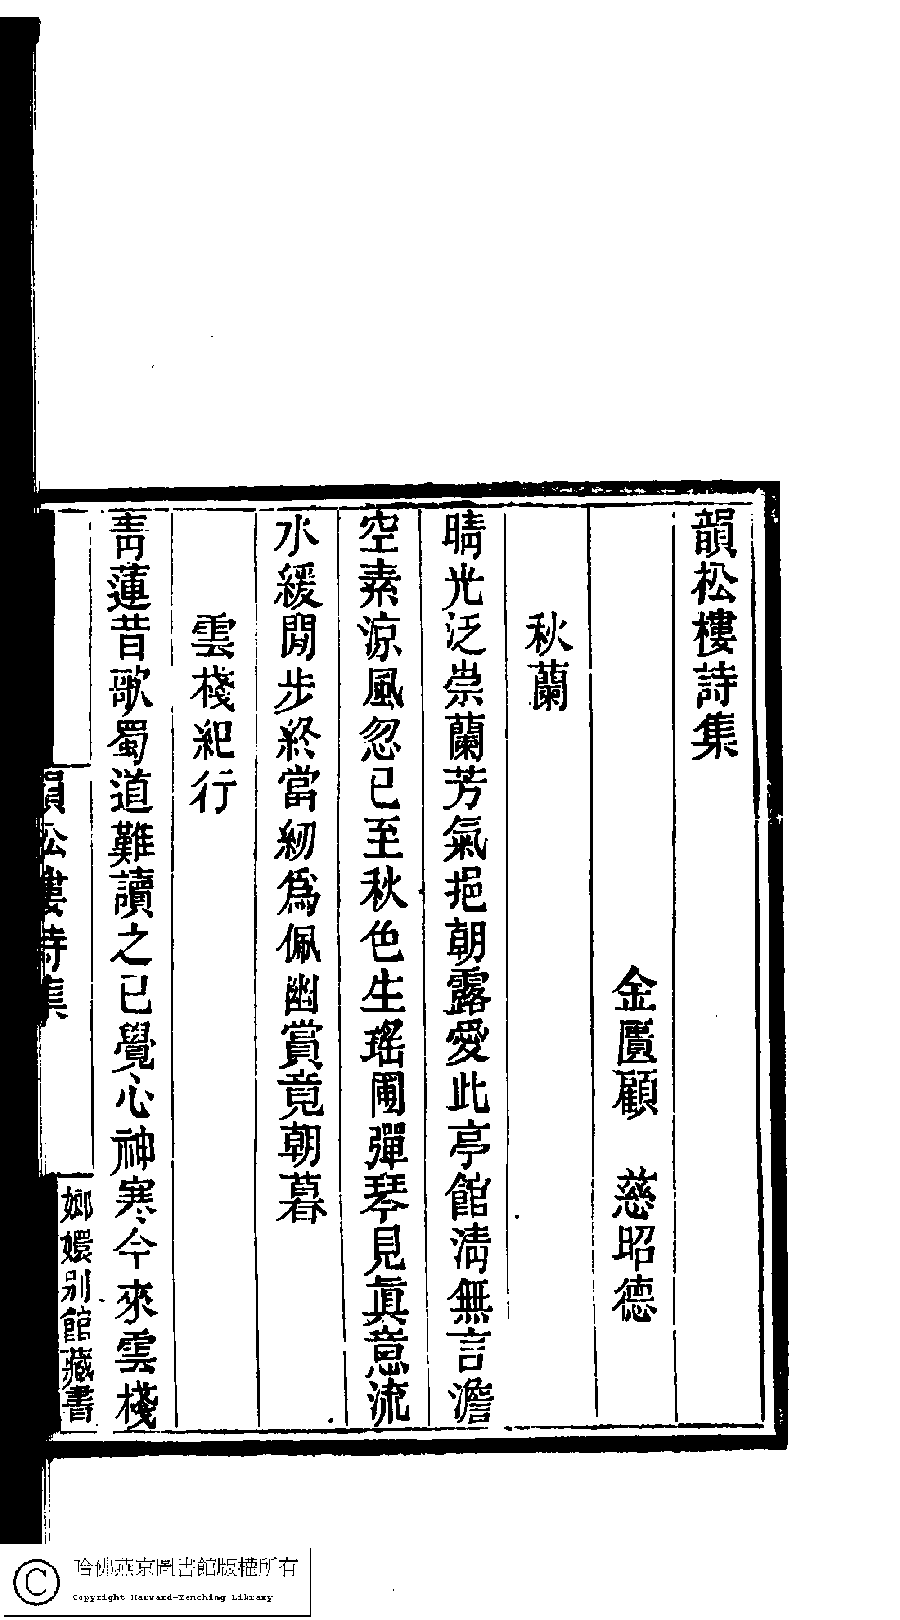 韻松樓詩集
金匱顧　慈昭德
秋蘭
晴光泛崇蘭芳氣挹朝露愛此亭館淸無言澹
空素涼風忽已至秋色生瑤圃彈琴見眞意流
水緩閒步終當紉爲佩幽賞竟朝暮
雲棧紀行
靑蓮昔歌蜀道難讀之已覺心神寒今來雲棧
韻松樓詩集
嫏嬛別館藏書
哈佛燕京圖書館版權所有
Copyright Harvard-Yenching Library